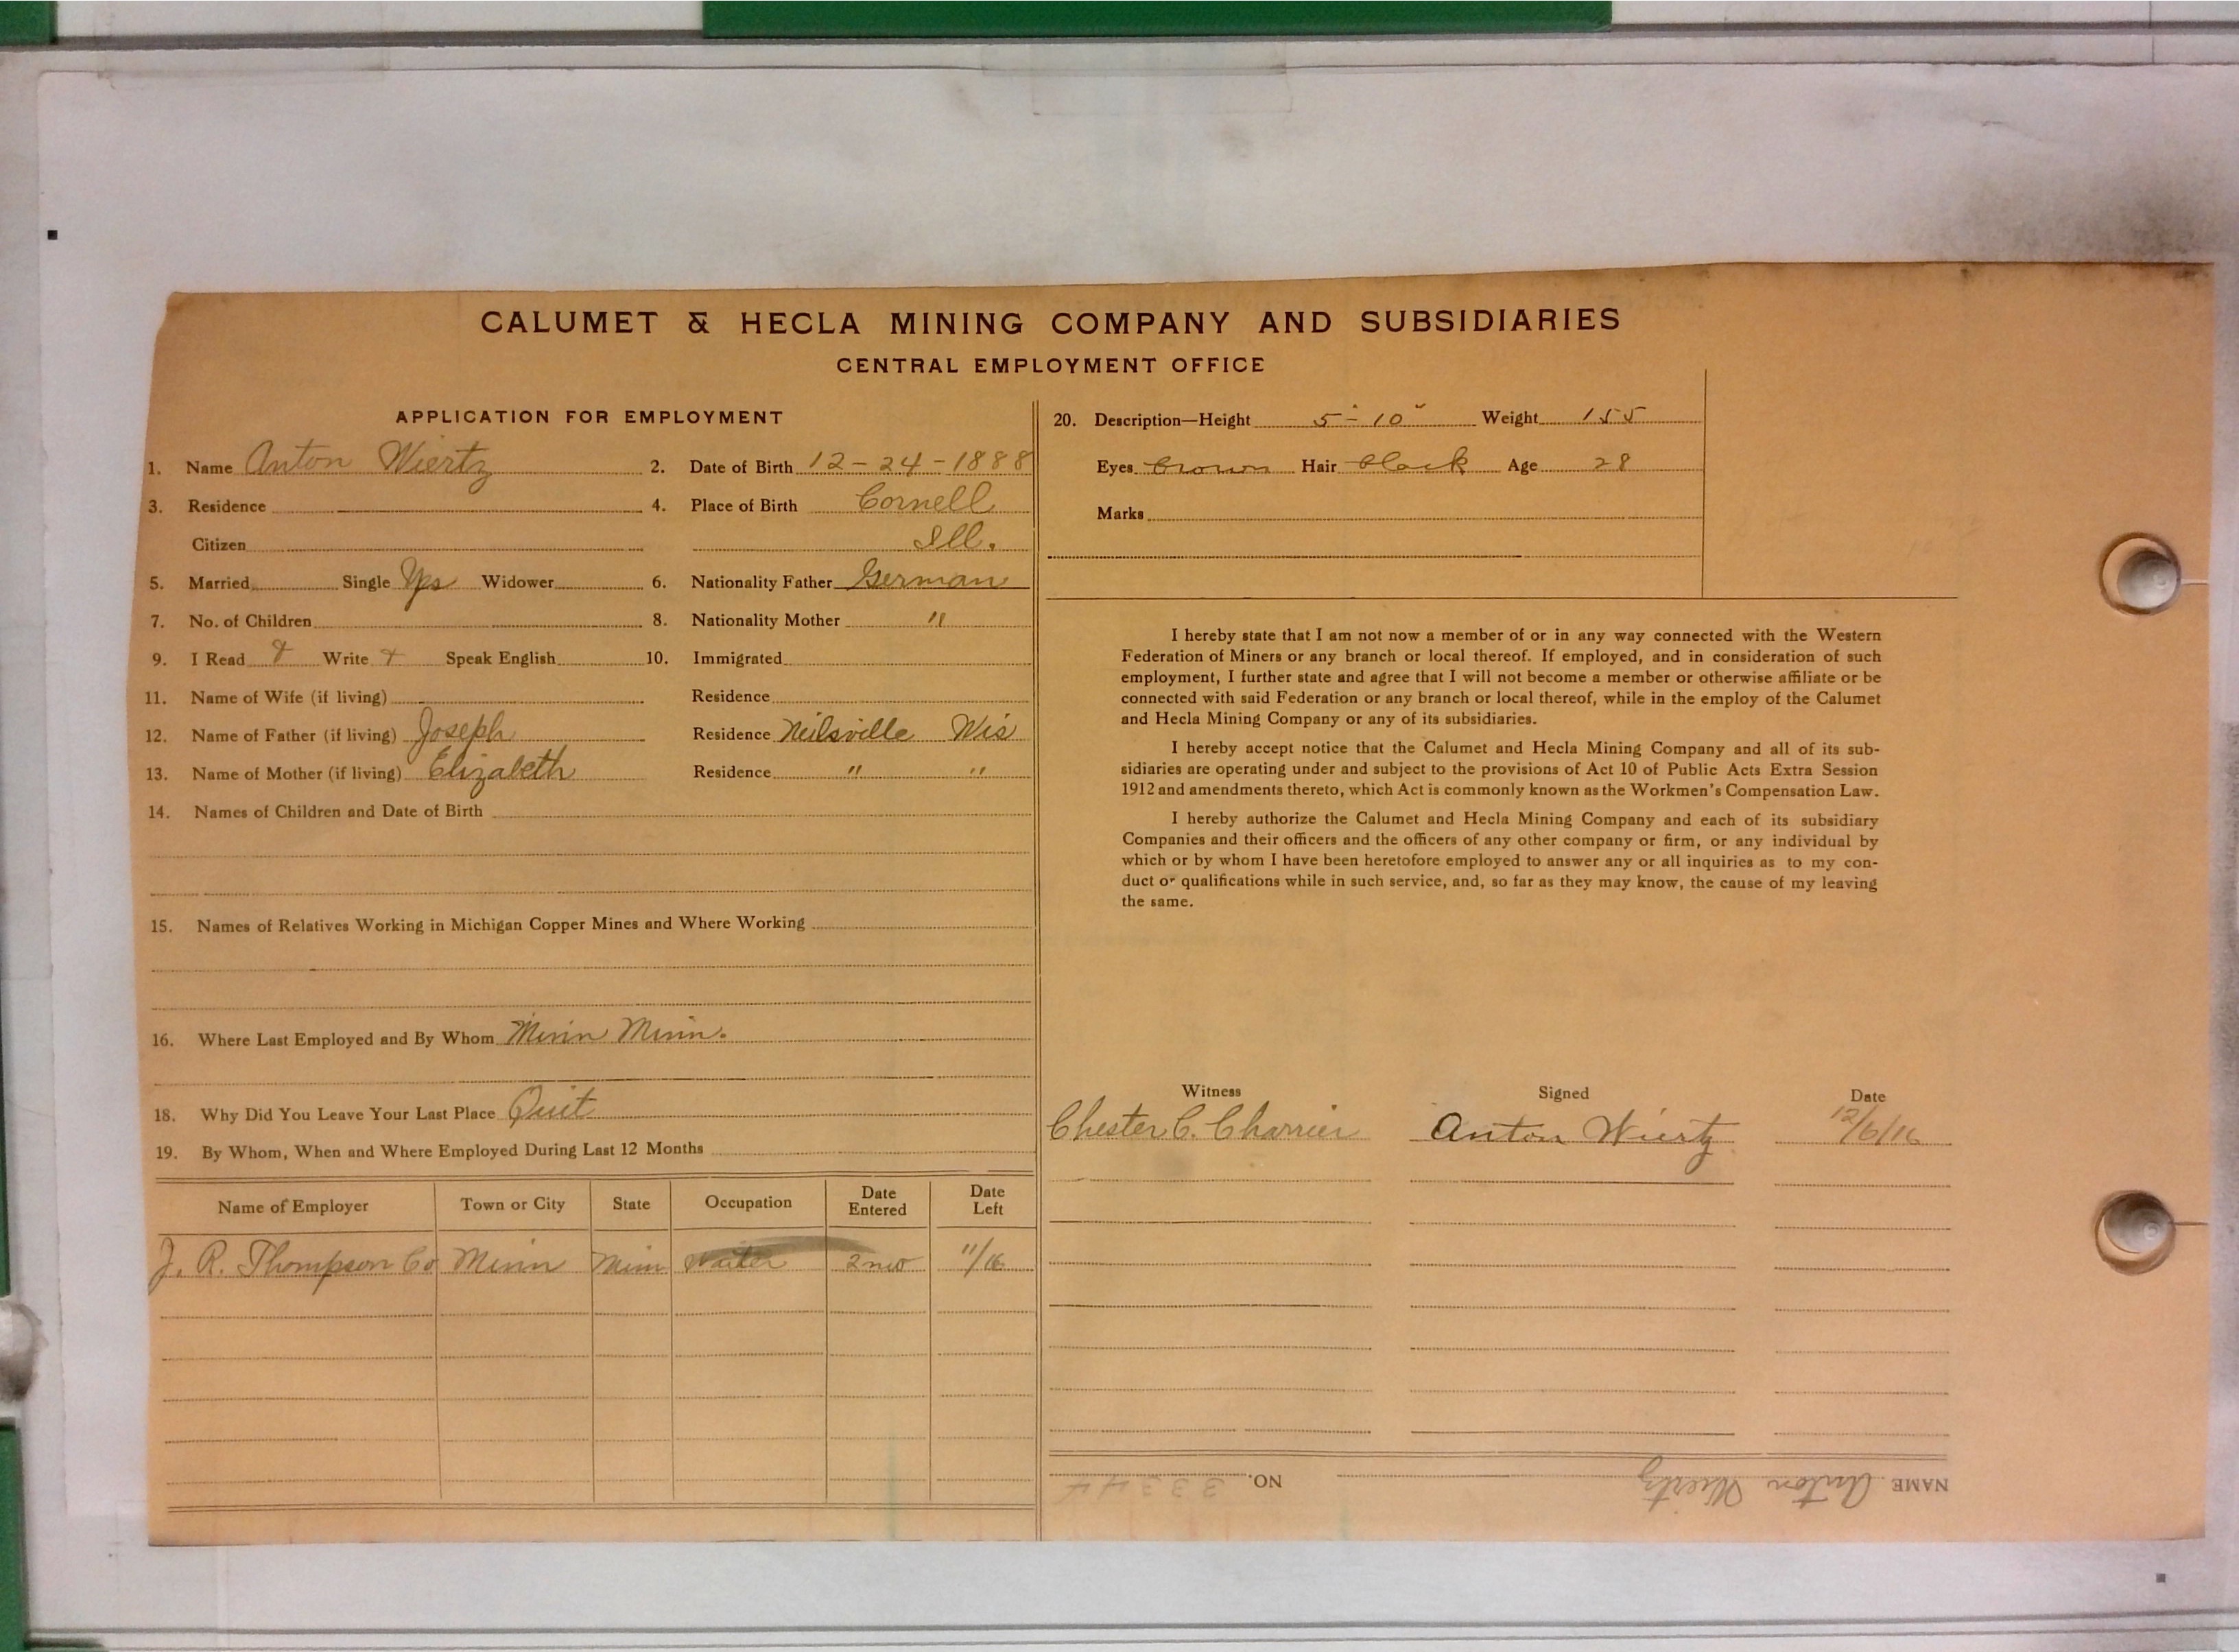 CALUMET & HECLA MINING COMPANY AND SUBSIDIARIES
CENTRAL EMPLOYMENT OFFICE
APPLICATION FOR EMPLOYMENT
1. Name Anton Wiertz 2. Date of Birth 12-24-1888
3. Residence 4. Place of Birth Cornell
Citizen Ill.
5. Married Single Yes Widower 6. Nationality Father German
7. No. of Children 8. Nationality Mother "
9. I Read Write Speak English 10. Immigrated
11. Name of Wife (if living) Residence
12. Name of Father (if living) Joseph Residence Neilsville Wis
13. Name of Mother (if living) Elizabeth Residence " "
14. Names of Children and Date of Birth
15. Names of Relatives Working in Michigan Copper Mines and Where Working
16. Where Last Employed and By Whom Minn Minn.
18. Why Did You Leave Your Last Place Quit
19. By Whom, When and Where Employed During Last 12 Months
Name of Employer Town or City State Occupation Date Entered Date Left
J. R. Thompson Co Minn Minn Waiter 2 mo 11/16
20. Description—Height 5'-10" Weight 155
Eyes brown Hair black Age 28
Marks
I hereby state that I am not now a member of or in any way connected with the Western
Federation of Miners or any branch or local thereof. If employed, and in consideration of such
employment, I further state and agree that I will not become a member or otherwise affiliate or be
connected with said Federation or any branch or local thereof, while in the employ of the Calumet
and Hecla Mining Company or any of its subsidiaries.
I hereby accept notice that the Calumet and Hecla Mining Company and all of its sub-
sidiaries are operating under and subject to the provisions of Act 10 of Public Acts Extra Session
1912 and amendments thereto, which Act is commonly known as the Workmen's Compensation Law.
I hereby authorize the Calumet and Hecla Mining Company and each of its subsidiary
Companies and their officers and the officers of any other company or firm, or any individual by
which or by whom I have been heretofore employed to answer any or all inquiries as to my con-
duct or qualifications while in such service, and, so far as they may know, the cause of my leaving
the same.
Witness Signed Date
Chester C. Charrier Anton Wiertz 12/6/16
NAME Anton Wiertz NO. 3334